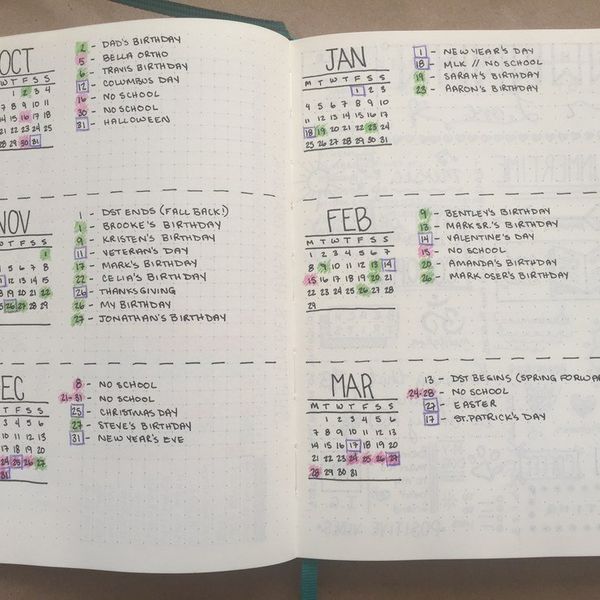 OCT
W T F S S
1 2 3 4
7 8 9 10 11
15 16 17 18
21 22 23 24 25
28 29 30 31
2 - DAD'S BIRTHDAY
5 - BELLA ORTHO
6 - TRAVIS BIRTHDAY
12 - COLUMBUS DAY
16 - NO SCHOOL
30 - NO SCHOOL
31 - HALLOWEEN
NOV
W T F S S
1
4 5 6 7 8
12 13 14 15
18 19 20 21 22
26 27 28 29
1 - DST ENDS (FALL BACK!)
1 - BROOKE'S BIRTHDAY
9 - KRISTEN'S BIRTHDAY
11 - VETERAN'S DAY
17 - MARK'S BIRTHDAY
22 - CELIA'S BIRTHDAY
26 - THANKSGIVING
26 - MY BIRTHDAY
27 - JONATHAN'S BIRTHDAY
EC
T F S S
3 4 5 6
10 11 12 13
17 18 19 20
24 25 26 27
31
8 - NO SCHOOL
21-31 - NO SCHOOL
25 - CHRISTMAS DAY
27 - STEVE'S BIRTHDAY
31 - NEW YEAR'S EVE
JAN
M T W T F S S
1 2 3
4 5 6 7 8 9 10
11 12 13 14 15 16 17
18 19 20 21 22 23 24
25 26 27 28 29 30 31
1 - NEW YEAR'S DAY
18 - MLK // NO SCHOOL
19 - SARAH'S BIRTHDAY
23 - AARON'S BIRTHDAY
FEB
M T W T F S S
1 2 3 4 5 6 7
8 9 10 11 12 13 14
15 16 17 18 19 20 21
22 23 24 25 26 27 28
29
9 - BENTLEY'S BIRTHDAY
13 - MARK SR.'S BIRTHDAY
14 - VALENTINE'S DAY
15 - NO SCHOOL
20 - AMANDA'S BIRTHDAY
26 - MARK OSER'S BIRTHDAY
MAR
M T W T F S S
1 2 3 4 5 6
7 8 9 10 11 12 13
14 15 16 17 18 19 20
21 22 23 24 25 26 27
28 29 30 31
13 - DST BEGINS (SPRING FORWAR
24-28 - NO SCHOOL
27 - EASTER
17 - ST. PATRICK'S DAY